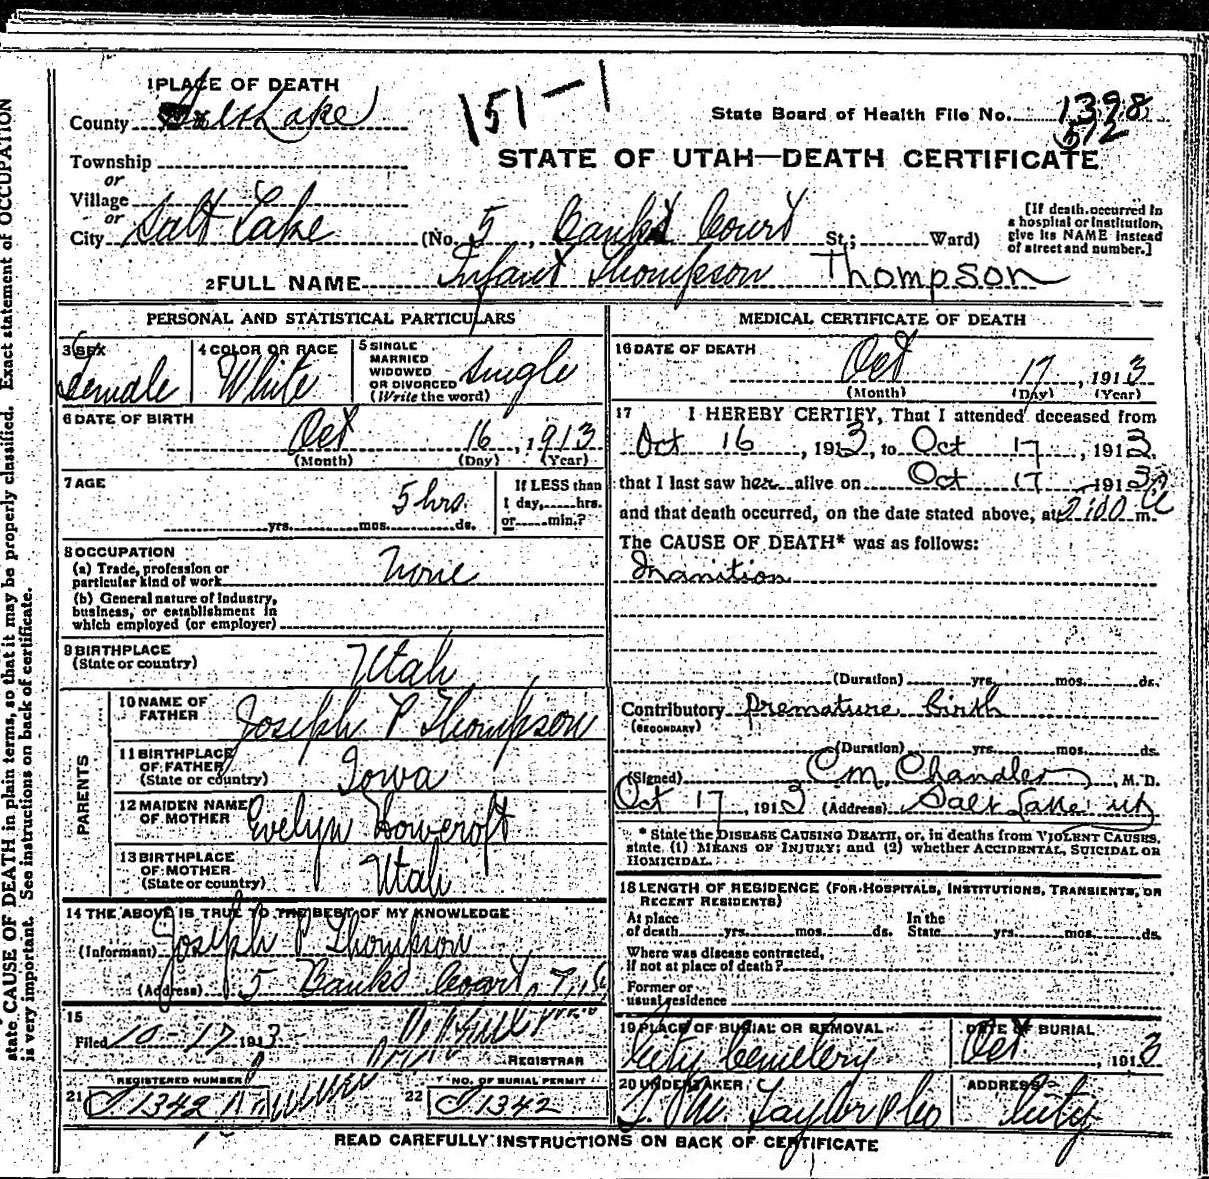 151-1
1 PLACE OF DEATH
County Salt Lake
State Board of Health File No. 1398
512
Township
or
Village
or
STATE OF UTAH—DEATH CERTIFICATE
City Salt Lake (No. 5, Banks Court St.; Ward)
[If death occurred in a hospital or institution, give its NAME instead of street and number.]
2 FULL NAME Infant Thompson Thompson
PERSONAL AND STATISTICAL PARTICULARS
3 SEX Female
4 COLOR OR RACE White
5 SINGLE MARRIED WIDOWED OR DIVORCED (Write the word) Single
6 DATE OF BIRTH
Oct 16, 1913
(Month) (Day) (Year)
7 AGE
5 hrs.
yrs. mos. ds.
If LESS than
1 day, hrs.
or min.?
8 OCCUPATION
(a) Trade, profession or
particular kind of work None
(b) General nature of industry,
business, or establishment in
which employed (or employer)
9 BIRTHPLACE
(State or country) Utah
PARENTS
10 NAME OF
FATHER Joseph P Thompson
11 BIRTHPLACE
OF FATHER
(State or country) Iowa
12 MAIDEN NAME
OF MOTHER Evelyn Howcroft
13 BIRTHPLACE
OF MOTHER
(State or country) Utah
14 THE ABOVE IS TRUE TO THE BEST OF MY KNOWLEDGE
(Informant) Joseph P Thompson
(Address) 5 Banks Court
15
Filed 10-17 1913
REGISTRAR
REGISTERED NUMBER
21 J 1342
NO. OF BURIAL PERMIT
22 J 1342
MEDICAL CERTIFICATE OF DEATH
16 DATE OF DEATH
Oct 17, 1913
(Month) (Day) (Year)
17 I HEREBY CERTIFY, That I attended deceased from
Oct 16, 1913, to Oct 17, 1913,
that I last saw her alive on Oct 17 1913
and that death occurred, on the date stated above, at 2:00 a m.
The CAUSE OF DEATH* was as follows:
Inanition
(Duration) yrs. mos. ds.
Contributory Premature birth
(SECONDARY)
(Duration) yrs. mos. ds.
(Signed) CM Chandler, M. D.
Oct 17, 1913 (Address) Salt Lake Ut
* State the DISEASE CAUSING DEATH, or, in deaths from VIOLENT CAUSES,
state (1) MEANS OF INJURY; and (2) whether ACCIDENTAL, SUICIDAL OR
HOMICIDAL.
18 LENGTH OF RESIDENCE (FOR HOSPITALS, INSTITUTIONS, TRANSIENTS, OR
RECENT RESIDENTS)
At place
of death yrs. mos. ds.
In the
State yrs. mos. ds.
Where was disease contracted,
if not at place of death?
Former or
usual residence
19 PLACE OF BURIAL OR REMOVAL
City Cemetery
DATE OF BURIAL
Oct, 1913
20 UNDERTAKER
Taylor & Co
ADDRESS
City
READ CAREFULLY INSTRUCTIONS ON BACK OF CERTIFICATE
state CAUSE OF DEATH in plain terms, so that it may be properly classified. Exact statement of OCCUPATION
is very important. See instructions on back of certificate.